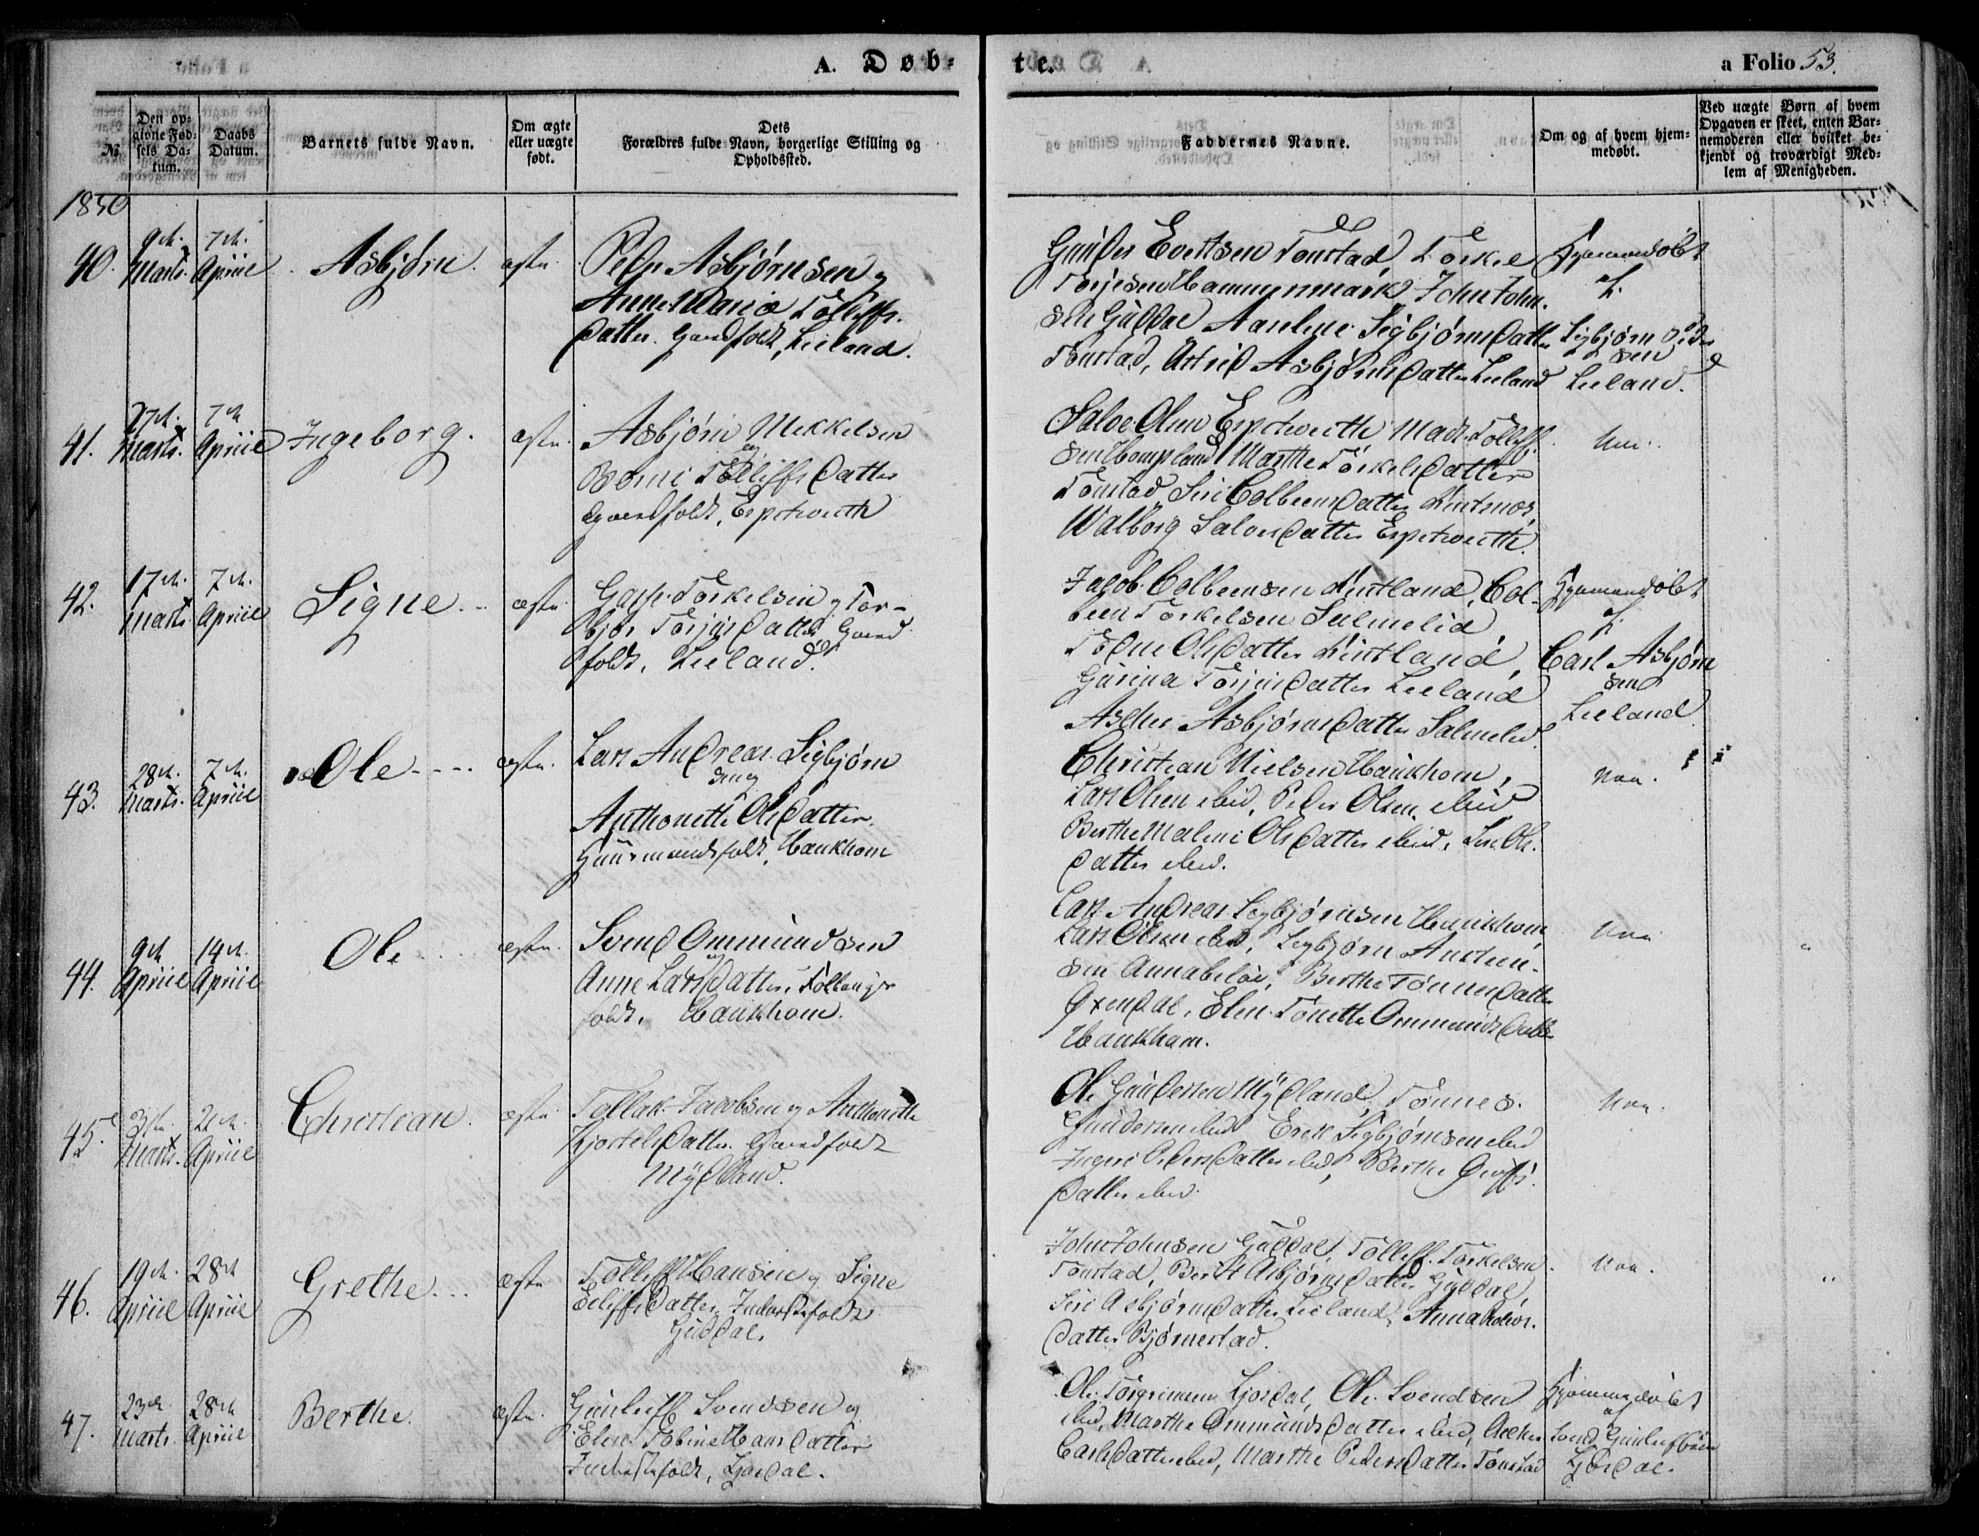 A. Døb-
te.
a Folio 53.
№.
Den op-
givne Fød-
sels Da-
tum.
Daabs
Datum.
Barnets fulde Navn.
Om ægte
eller uægte
født.
Dets
Forældres fulde Navn, borgerlige Stilling og
Opholdssted.
Faddernes Navne.
Om og af hvem hjem-
medøbt.
Ved uægte Børn af hvem
Opgaven er skeet, enten Bar-
nemoderen eller hvilket be-
kjendt og troværdigt Med-
lem af Menigheden.
1850
40. 9de Marts. 7de Apriil Asbjørn. ægte.
Peder Asbjørnsen og
Anne Maria Tolliffs-
datter. Gaardfolk, Leeland.
Evertsen Tonstad, Torkel
Torjesen Hammenmark, John John-
sen Guddal Aaselene Sigbjørnsdatter
Tonstad, Astrid Asbjørnsdatter Leeland
Hjemmedøbt
af
Sigbjørn Peder
sen
Leeland.
41. 27de Marts. 7de Apriil Ingeborg. ægte.
Asbjørn Mikkelsen
og
Tolliffsdatter
Gaardfolk, Espetveith
Salve Olsen Espetveith Mads Tolliff-
sen Hompland Marthe Torkelsdatter
Tonstad, Siri Colbeensdatter
Walborg Salvesdatter Espetveith.
42. 17de Marts 7de Apriil Signe. ægte.
Torkelsen og Tor-
bjør Torjusdatter Gaard
folk, Leeland.
Jacob Colbeensen Lindland, Col-
been Torkelsen Salmelid
Olsdatter Lindland,
Gurina Torjusdatter Leeland
Asbjørnsdatter Salmelid.
Hjemmedøbt
af
Carl Asbjørn
sen
Leeland
43. 28de Marts. 7de Apriil Ole ægte.
Lars Andreas Sigbjørn
sen og
Anthonette Olsdatter.
Huusmandsfolk, Haukhom
Christian Nielsen Haukhom,
Lars Olsen ibid, Peder Olsen ibid
Berthe Malene Olsdatter ibid, Siri Ols-
datter ibid.
Nei.
44. 9de Apriil 14de Apriil Ole ægte.
Svend Ommundsen
og
Anne Larsdatter,
folk, Haukhom.
Lars Andreas Sigbjørnsen Haukhom
Lars Olsen ibid, Sigbjørn Austen-
sen Annabeløe, Berthe Tønnesdatter
Øxendal, Elen Tonette Ommundsdatter
Haukhom.
Nei
"
45. Marts. Apriil Christian. ægte.
Tollak Jacobsen og Anthonette
Kjostelsdatter. Gaardfolk
Mydland.
Ole Gundersen Mydland, Tønnes
Gundersen ibid Erik Sigbjørnsen ibid
Ingeri Pedersdatter ibid, Berthe
datter ibid.
Nei.
46. 19de Apriil 28de Apriil Grethe ægte
Tolliff Hansen og Signe
Eiliffsdatter Inderstefolk
Guddal.
John Johnsen Guddal, Tolliff Torkelsen
Tonstad, Berit Asbjørnsdatter Guddal,
Siri Asbjørnsdatter Leeland, Anna
datter Bjørnestad.
Nei.
"
47. 23de Marts. 28de Apriil Berthe. ægte.
Gunluff Svendsen og
Elen Tobine Hansdatter
Inderstefolk, Josdal.
Ole Torgrimsen Josdal, Ole Svendsen
ibid, Marthe Ommundsdatter ibid,
Carlsdatter ibid, Marthe Pedersdatter Tonstad
Hjemmedøbt
af
Svend Gunlufsen
Josdal.